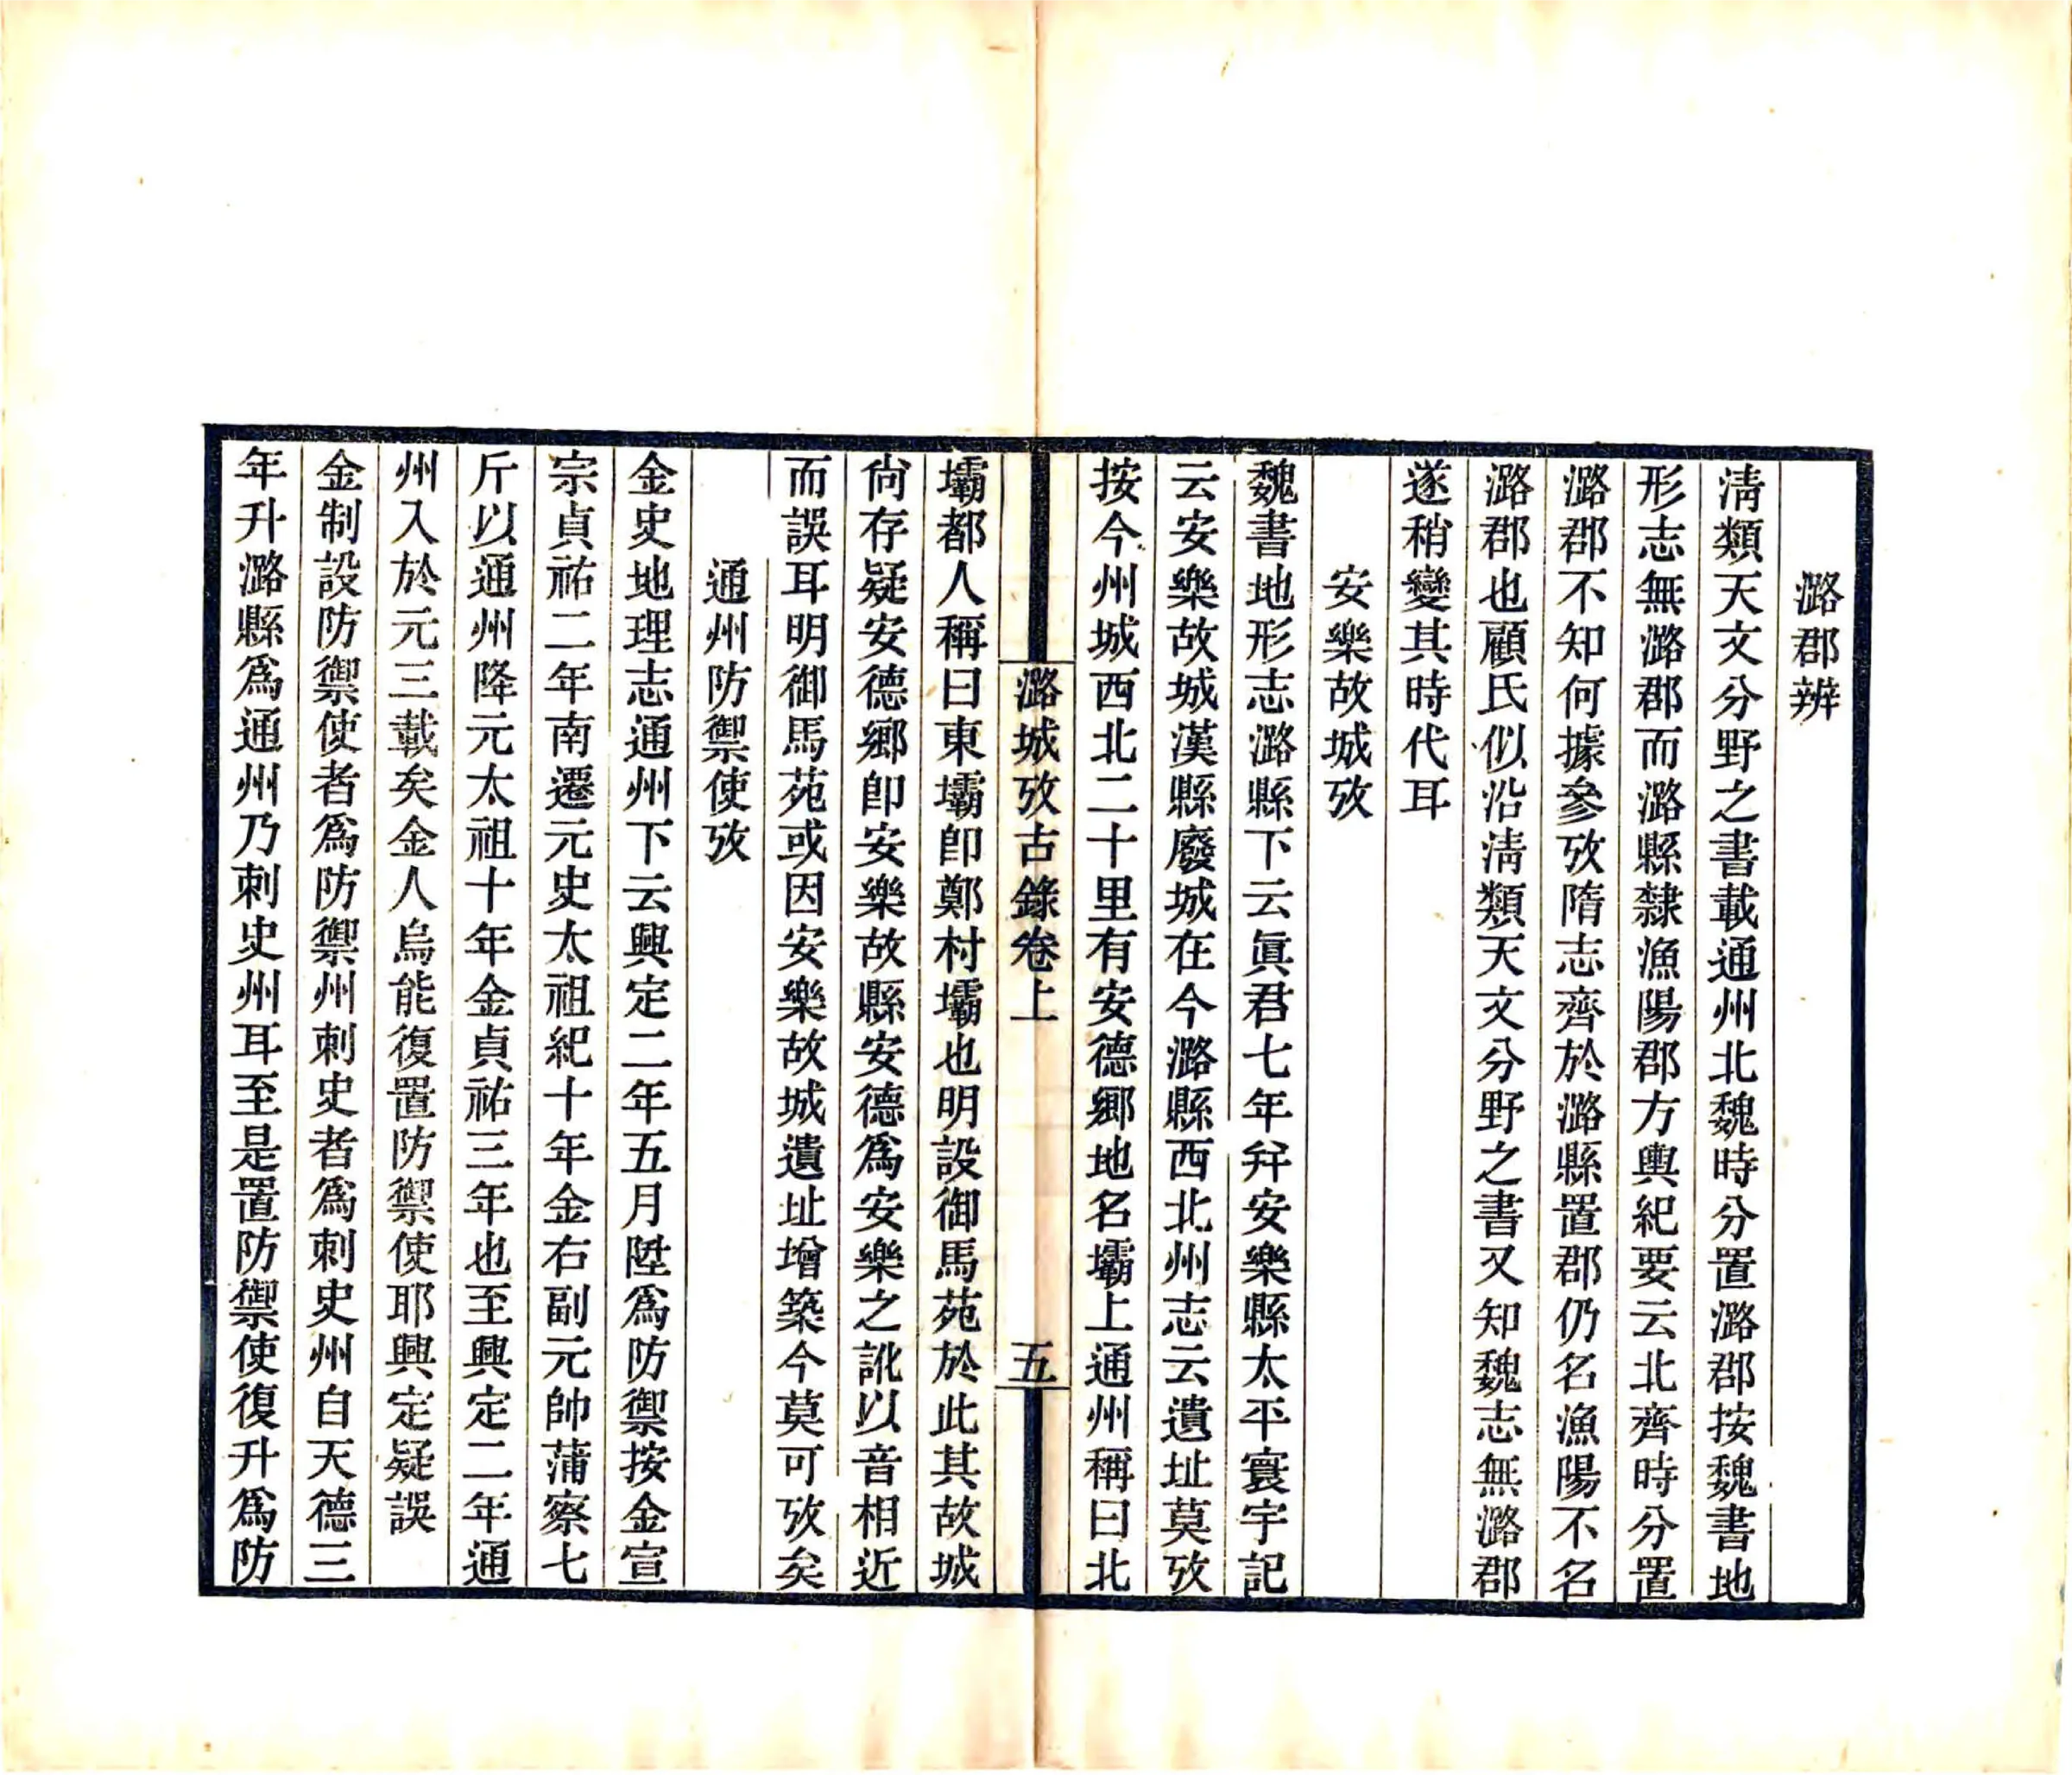 潞郡辨
淸類天文分野之書載通州北魏時分置潞郡按魏書地
形志無潞郡而潞縣隸漁陽郡方輿紀要云北齊時分置
潞郡不知何據參攷隋志齊於潞縣置郡仍名漁陽不名
潞郡也顧氏似沿淸類天文分野之書又知魏志無潞郡
遂稍變其時代耳
安樂故城攷
魏書地形志潞縣下云眞君七年幷安樂縣太平寰宇記
云安樂故城漢縣廢城在今潞縣西北州志云遺址莫攷
按今州城西北二十里有安德鄉地名壩上通州稱曰北
潞城攷古錄卷上
五
壩都人稱曰東壩卽鄭村壩也明設御馬苑於此其故城
尙存疑安德鄉卽安樂故縣安德爲安樂之訛以音相近
而誤耳明御馬苑或因安樂故城遺址增築今莫可攷矣
通州防禦使攷
金史地理志通州下云興定二年五月陞爲防禦按金宣
宗貞祐二年南遷元史太祖紀十年金右副元帥蒲察七
斤以通州降元太祖十年金貞祐三年也至興定二年通
州入於元三載矣金人烏能復置防禦使耶興定疑誤
金制設防禦使者爲防禦州刺史者爲刺史州自天德三
年升潞縣爲通州乃刺史州耳至是置防禦使復升爲防